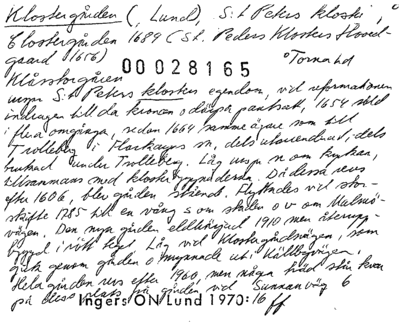 Klostergården (, Lund), S:t Peters kloster,
Clostergården 1689 (St. Peders Klosters Hoved-
gaard 1656)
00028165 °Torna hd
Klåstorgåren
urspr S:t Peters klosters egendom, vid reformationen
indragen till da kronan o därpå pantsatt, 1654 såld
i flera omgångar, sedan 1664 samme ägare som till
Trolleberg i Flackarps sn, dels utarrenderad, dels
brukad under Trolleberg. Låg urspr n om kyrkan,
tillsammans med klosterbyggnaderna. Då dessa revs
efter 1606, blev gården stående. Flyttades vid stor-
skifte 1785 till en vång s om staden o v om Malmö-
vägen. Den nya gården eldhärjad 1910 men återupp-
byggd i nytt läge. Låg vid Klostergårdsvägen, som
gick genom gården o mynnade ut i Källbyvägen.
Hela gården revs efter 1960, men några träd står kvar
på dess plats på gården vid Sunnanväg 6
Ingers ON Lund 1970: 16 ff